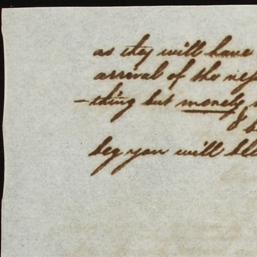 as they will have
arrival of the
-thing but money
&
beg you will